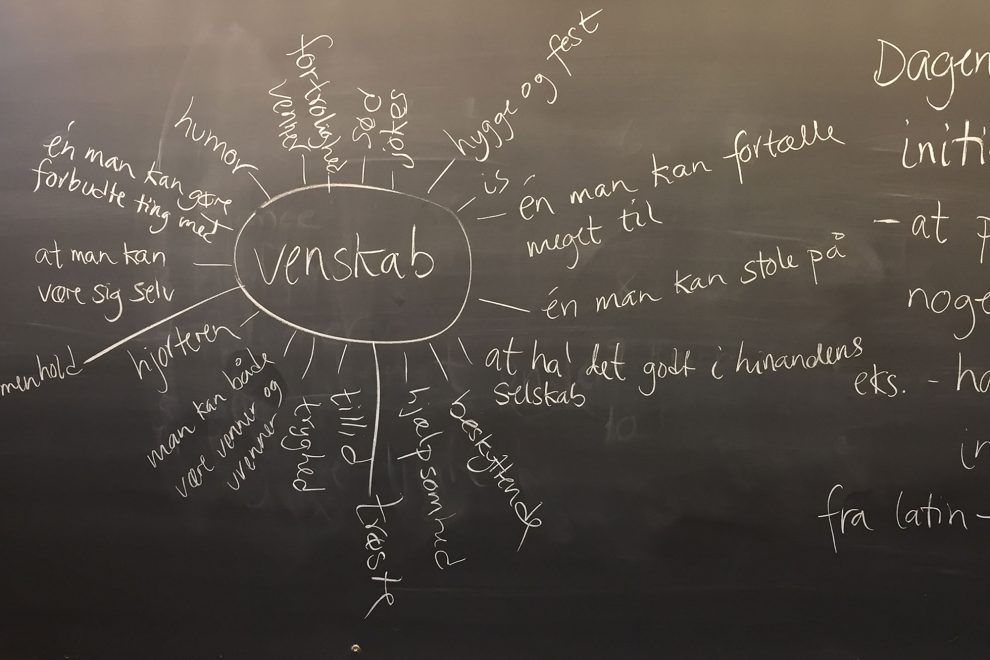 venskab
humor
fortrolighed
venner
sover
pos
hygge og fest
is
én man kan fortælle
meget til
én man kan stole på
at ha' det godt i hinandens
selskab
beskyttende
hjælpsomhed
trøste
tillid
tryghed
man kan både
være venner og
uvenner
hjorteren
menhold
at man kan
være sig selv
én man kan gøre
forbudte ting med
Dagen
initi
- at p
noge
eks. - ha
in
fra latin -